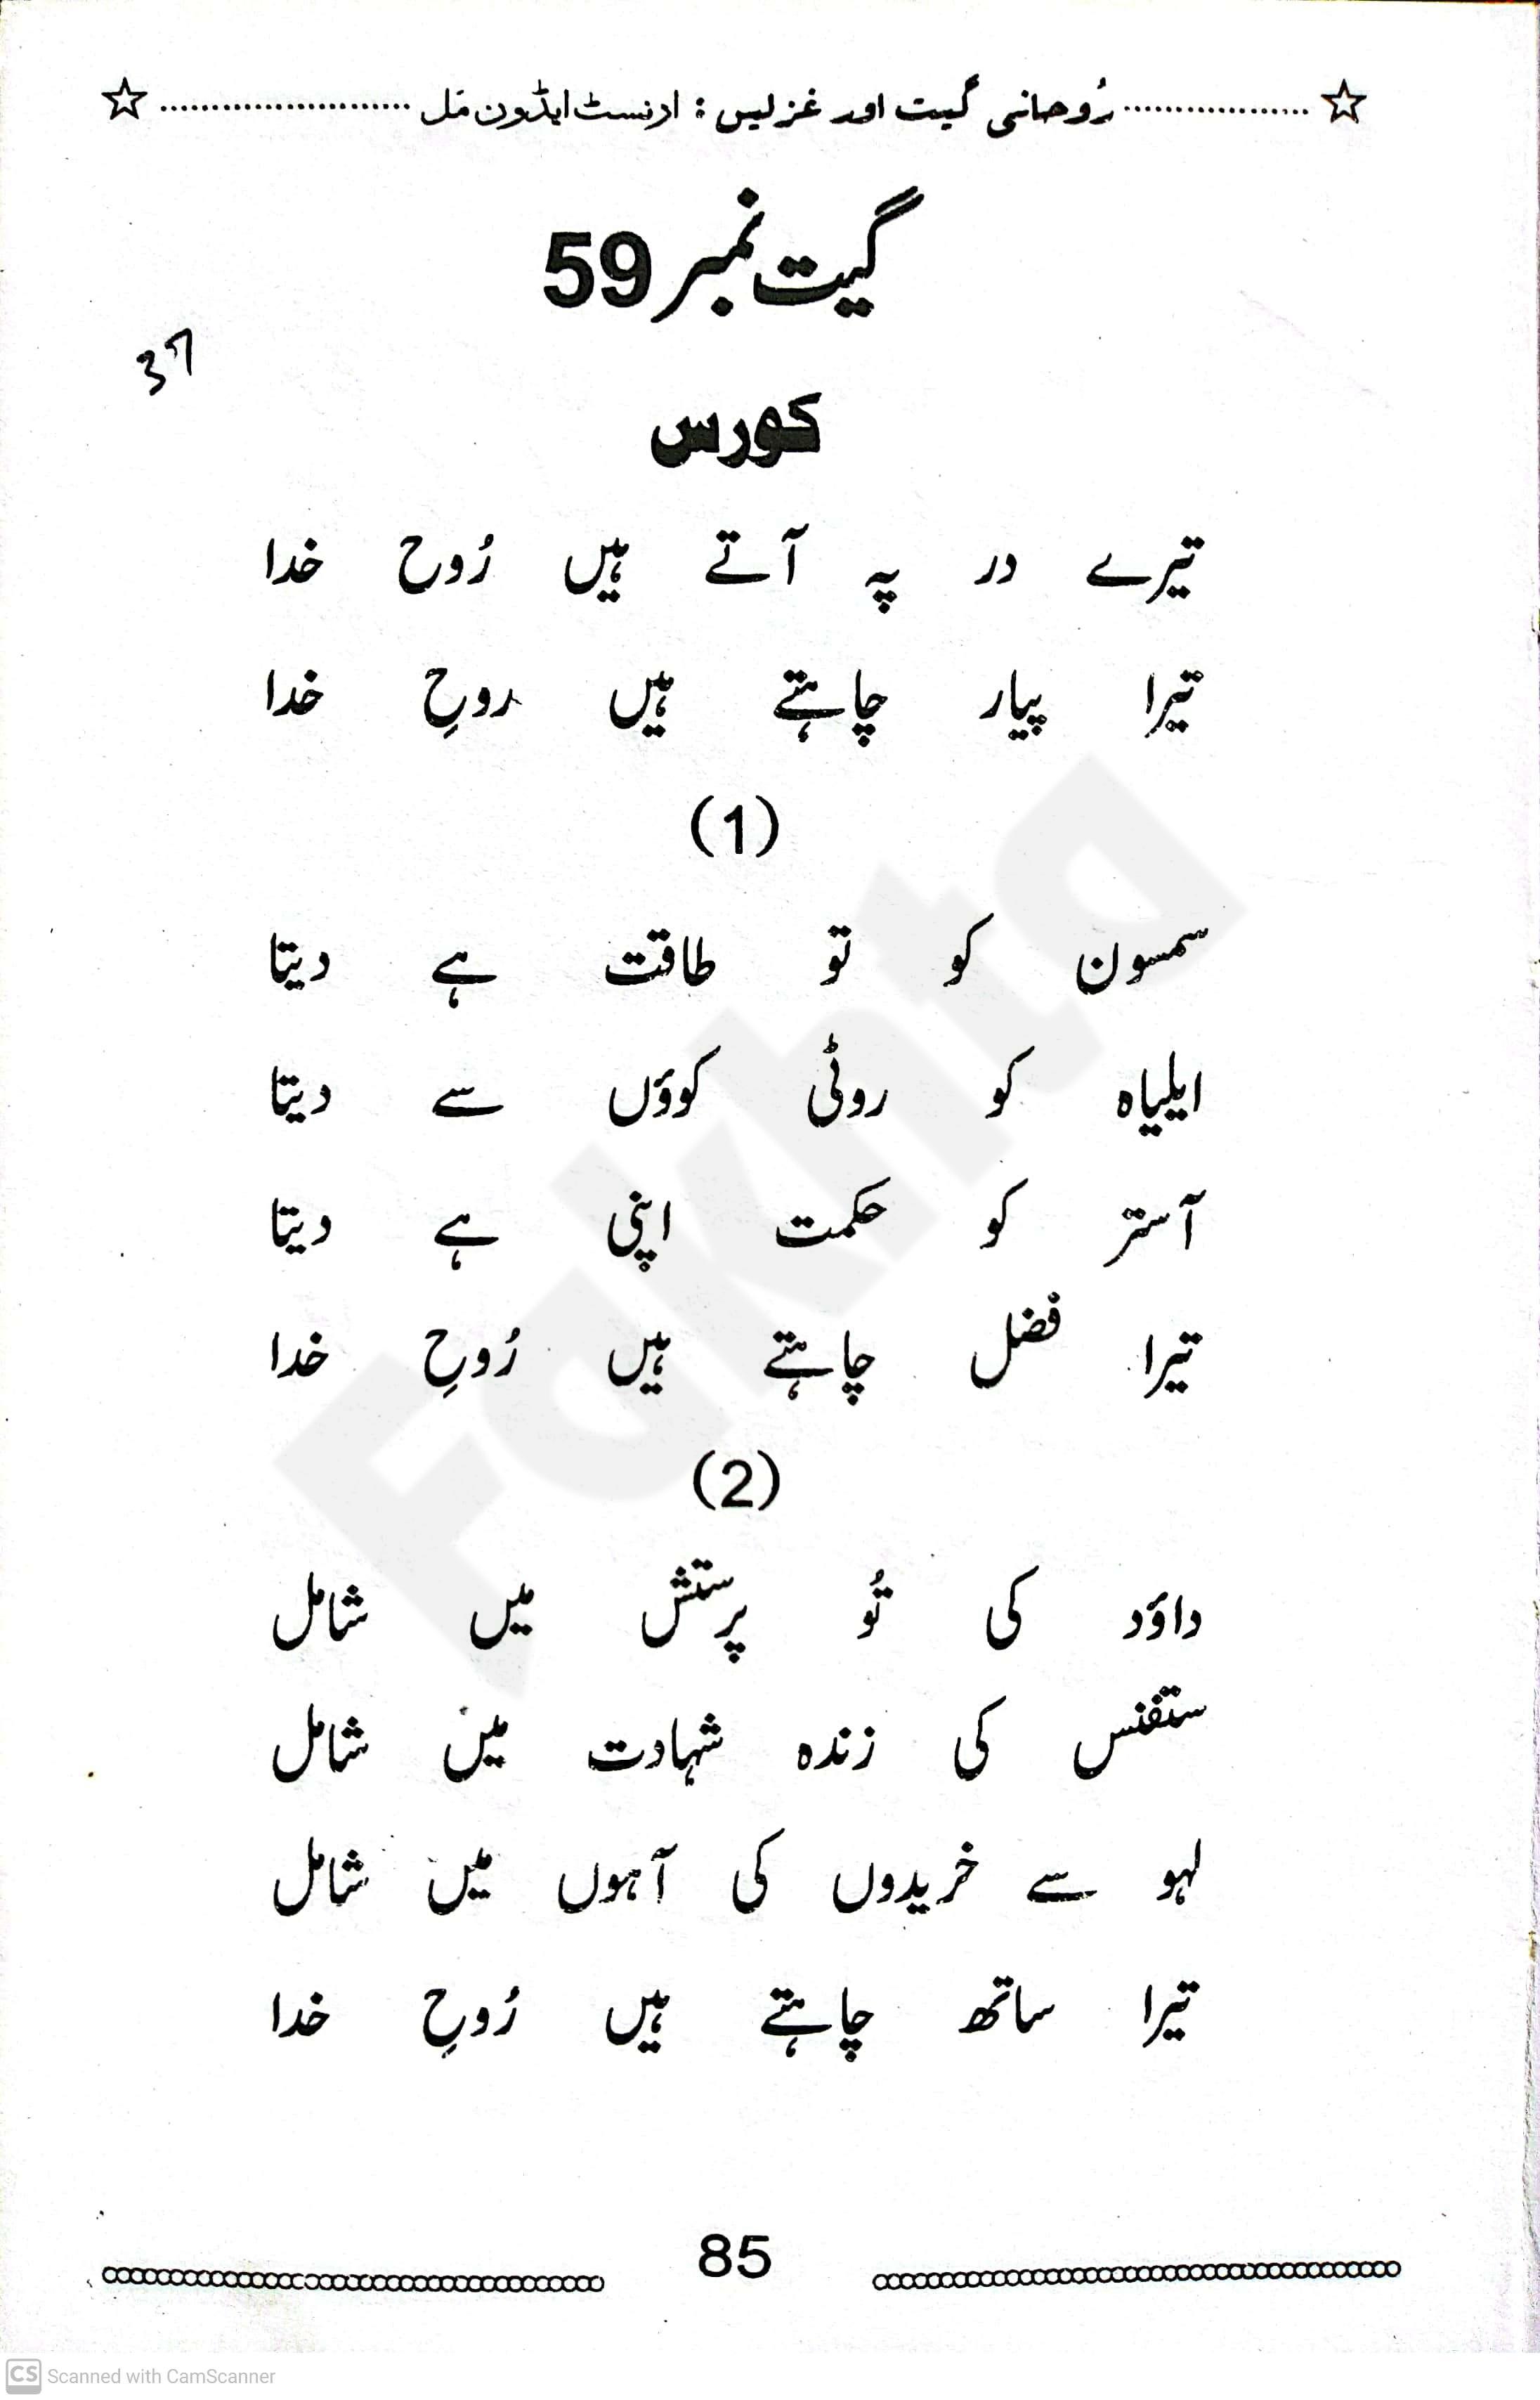 رُوحانی گیت اور غزلیں : ارنسٹ ایڈون مَل
گیت نمبر 59
37
کورس
تیرے در پہ آتے ہیں رُوح خدا
تیرا پیار چاہتے ہیں روحِ خدا
(1)
سمسون کو تو طاقت ہے دیتا
ایلیاہ کو روٹی کوؤں سے دیتا
آستر کو حکمت اپنی ہے دیتا
تیرا فضل چاہتے ہیں رُوحِ خدا
(2)
داؤد کی تُو پرستش میں شامل
ستفنس کی زندہ شہادت میں شامل
لہو سے خریدوں کی آہوں میں شامل
تیرا ساتھ چاہتے ہیں رُوحِ خدا
85
Fakhta
CS Scanned with CamScanner